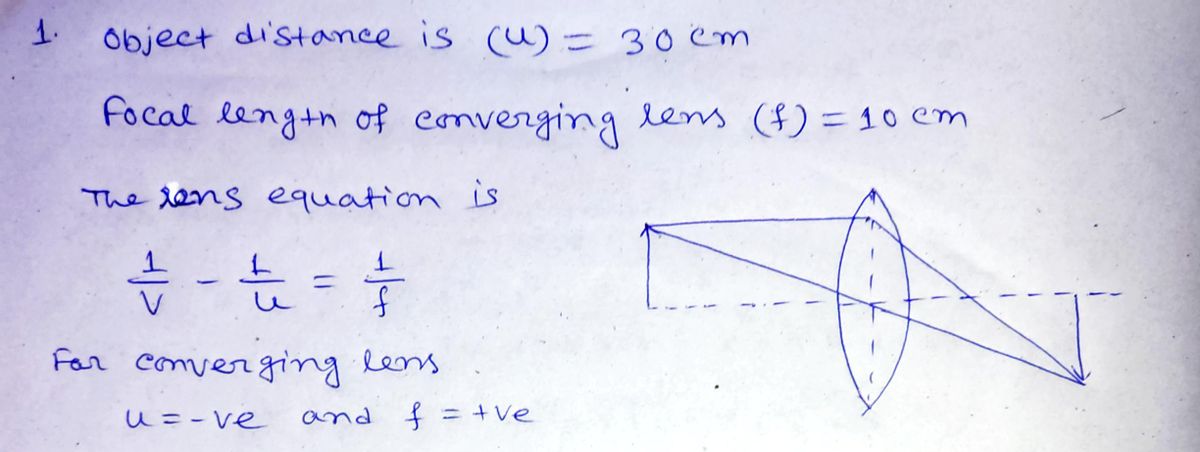 1. Object distance is (u) = 30 cm
Focal length of converging lens (f) = 10 cm
The lens equation is
1/v - 1/u = 1/f
For converging lens
u = -ve and f = +ve